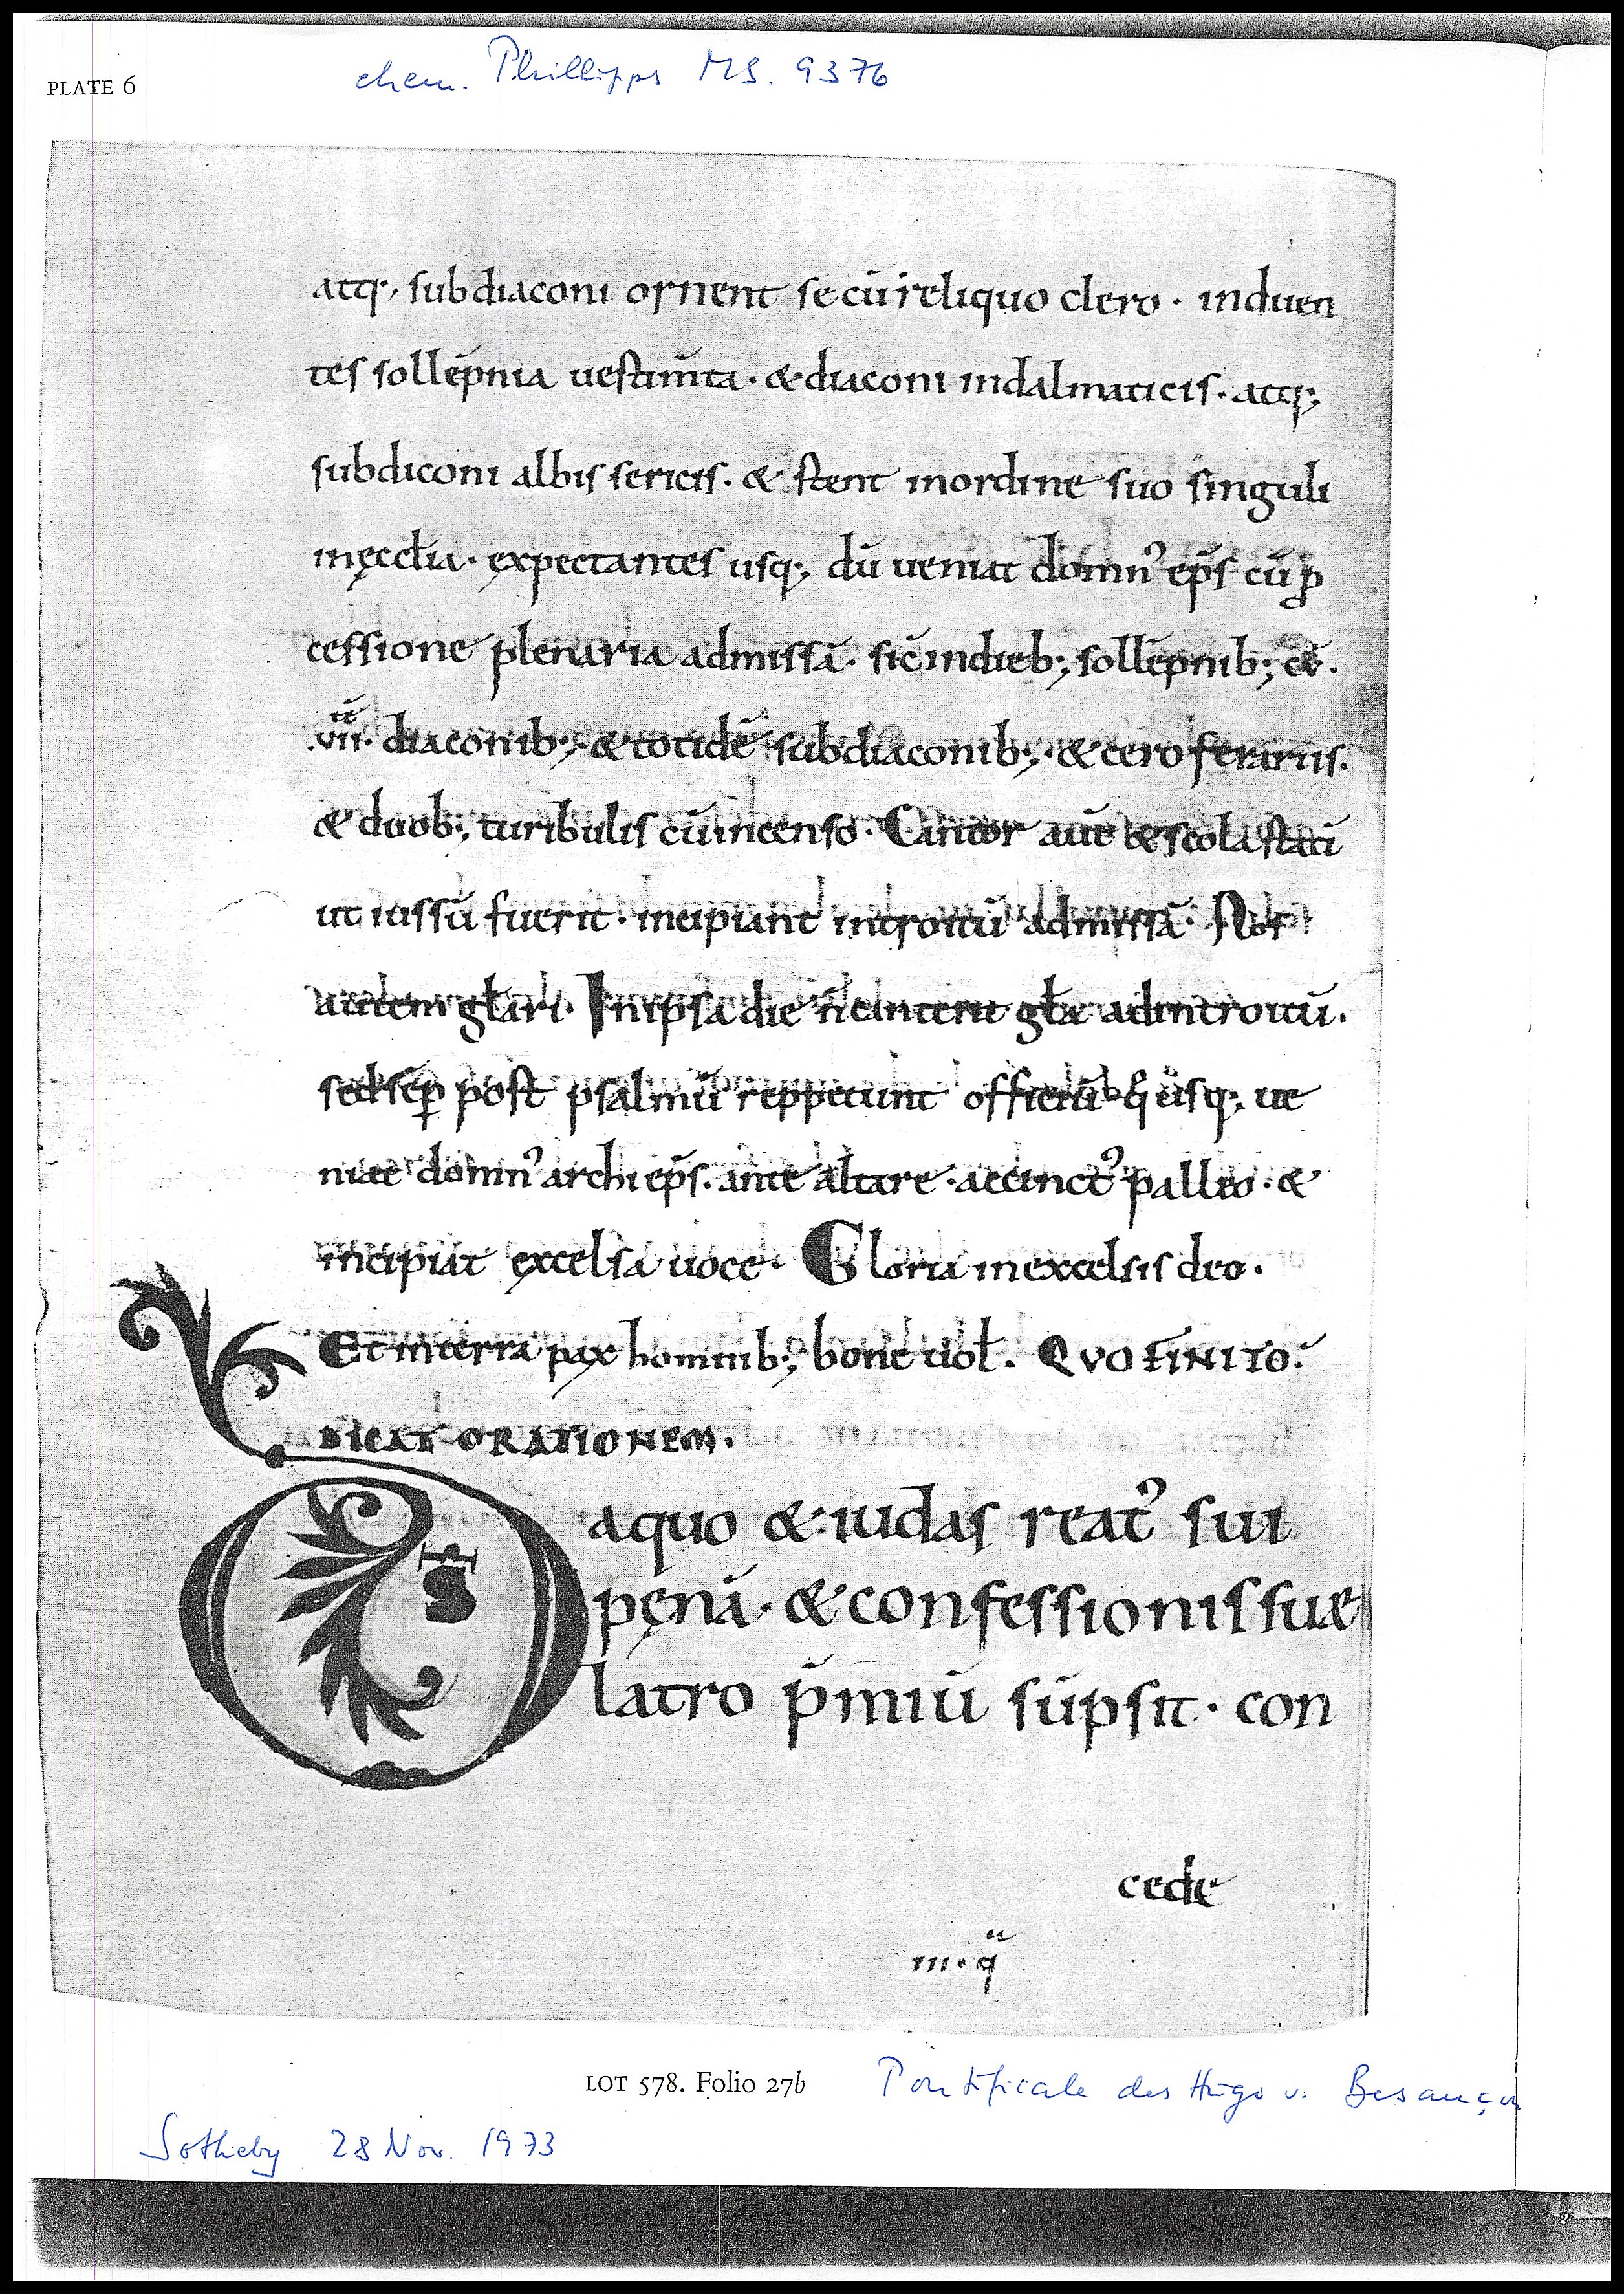 PLATE 6
chem. Phillipps MS. 9376
atq;, subdiaconi ornent se cū reliquo clero · induen
tes sollēpnia uestim̄ta · & diaconi indalmaticis · atq;
subdiconi albis sericis · & stent inordine suo singuli
inęccl̄ia · expectantes usq; dū ueniat domn᾽ ep̄s cū ꝓ
cessione plenaria admissā · sic̄ indieb; sollēpnib; cū ·
.vii. diaconib; · & totidē subdiaconib; · & ceroferariis.
& duob; turibulis cū incenso · Cantor aūe & scola stati
ut iussū fuerit · incipiant introitū admissā · Nos
autem gl̄ari. In ipsa die n̄ cantent gl̄a adintroitū.
sed sēp post psalmū reppetunt officiū q usq; ue
niat domn᾽ archiep̄s · ante altare · accinct᾽ palleo · &
incipiat excelsa uoce · Gloria inexcelsis deo.
Et interra pax hominib; bonē uol̄. QVO FINITO.
DICAT ORATIONEM.
DS aquo & iudas reat᾽ sui
pęnā · & confessionis suæ
latro p̄miū sūpsit · con
cede
III · q
LOT 578. Folio 27b
Pontificale des Hugo v. Besançon
Sotheby 28 Nov. 1973